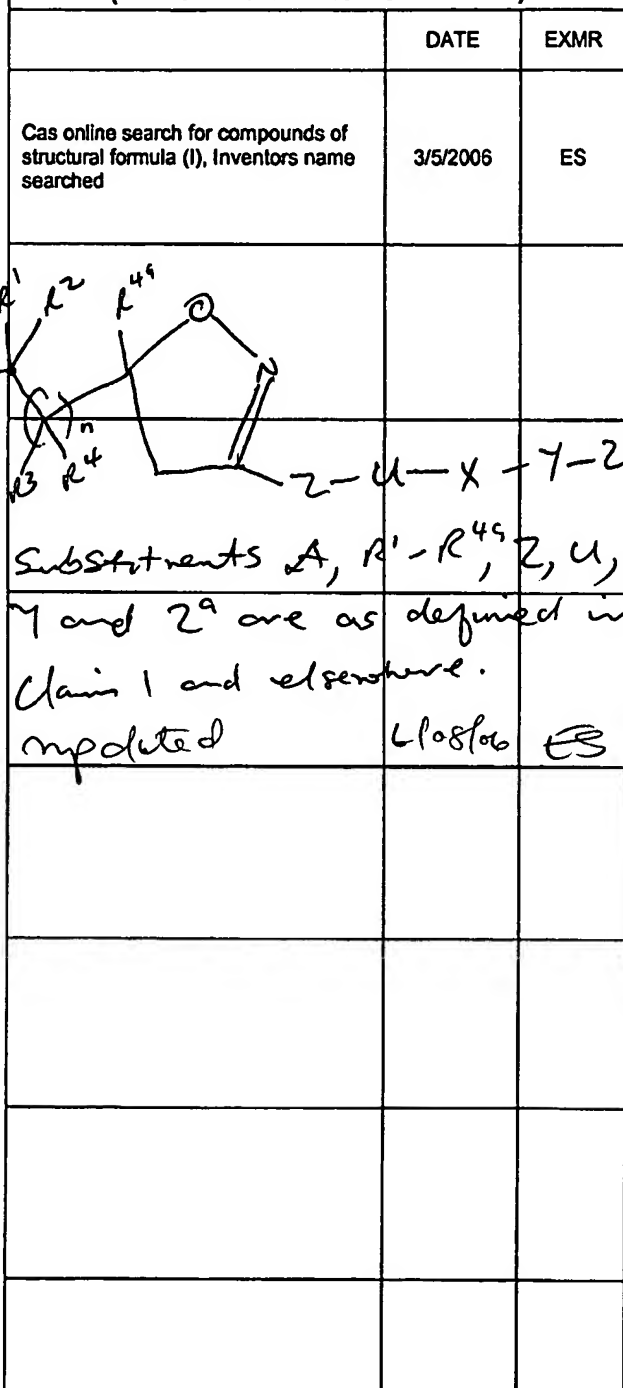 DATE EXMR
Cas online search for compounds of
structural formula (I), Inventors name
searched
3/5/2006 ES
R¹ R² R⁴ᵃ O
N
n
R3 R⁴
Z-U-X-Y-Z
Substitnents A, R¹-R⁴ᵃ, Z, U,
Y and Zᵃ are as defined in
Claim 1 and elsewhere.
updated ES